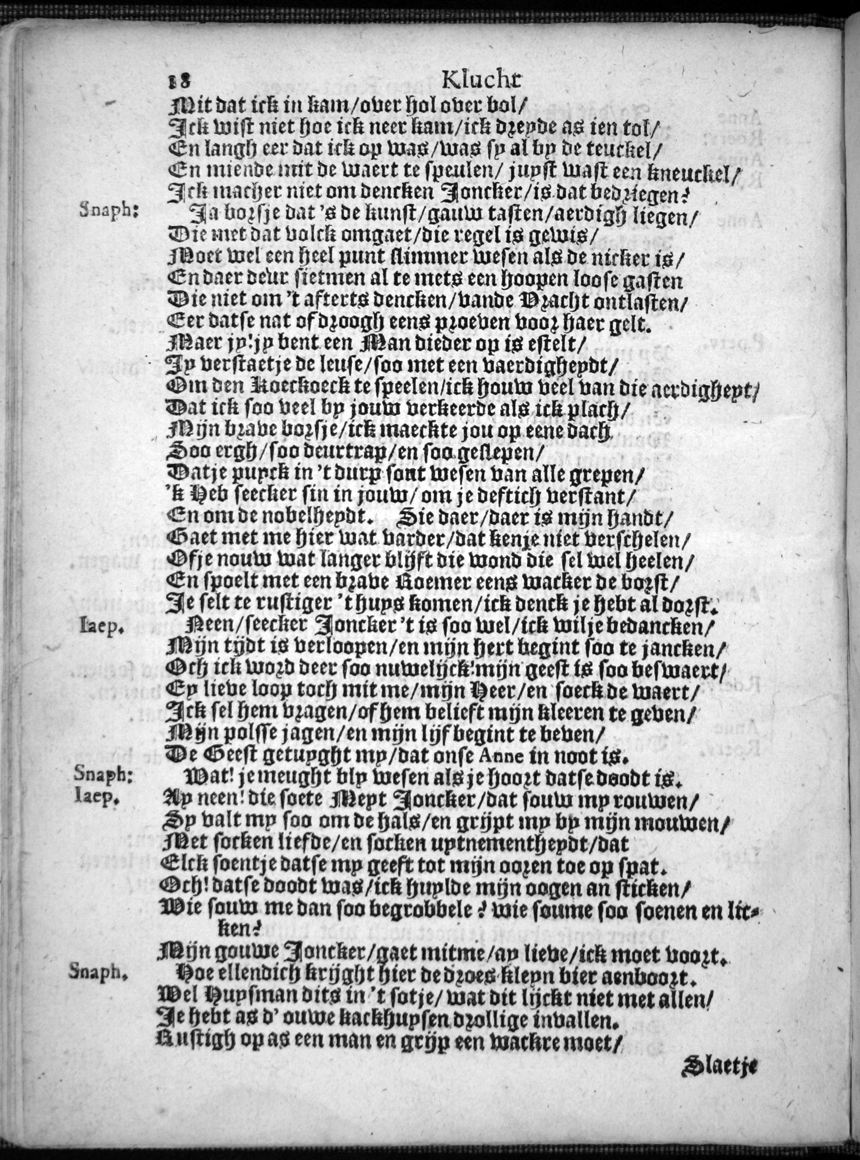 18 Klucht
Mit dat ick in kam/over hol over bol/
Ick wist niet hoe ick neer kam/ick dreyde as ien tol/
En langh eer dat ick op was/was sy al by de teuckel/
En miende mit de waert te speulen/ juyst wast een kneuckel/
Ick macher niet om dencken Joncker/is dat bedriegen?
Snaph: Ja borsje dat 's de kunst/gauw tasten/aerdigh liegen/
Die met dat volck omgaet/die regel is gewis/
Moet wel een heel punt slimmer wesen als de nicker is/
En daer deur sietmen al te mets een hoopen loose gasten
Die niet om 't afterts dencken/vande Vracht ontlasten/
Eer datse nat of droogh eens proeven voor haer gelt.
Maer jy!jy bent een Man dieder op is estelt/
Jy verstaetje de leuse/soo met een vaerdigheydt/
Om den Koeckoeck te speelen/ick houw veel van die aerdigheyt/
Dat ick soo veel by jouw verkeerde als ick plach/
Mijn brave borsje/ick maeckte jou op eene dach
Soo ergh/soo deurtrap/en soo geslepen/
Datje puyck in 't durp sout wesen van alle grepen/
'k Heb seecker sin in jouw/ om je deftich verstant/
En om de nobelheydt. Sie daer/daer is mijn handt/
Gaet met me hier wat varder/dat kenje niet verschelen/
Ofje nouw wat langer blijft die wond die sel wel heelen/
En spoelt met een brave Roemer eens wacker de borst/
Je selt te rustiger 't huys komen/ick denck je hebt al dorst.
Iaep. Neen/seecker Joncker 't is soo wel/ick wilje bedancken/
Mijn tijdt is verloopen/en mijn hert begint soo te jancken/
Och ick word deer soo nuwelijck!mijn geest is soo beswaert/
Ey lieve loop toch mit me/mijn Heer/en soeck de waert/
Ick sel hem vragen/of hem belieft mijn kleeren te geven/
Mijn polsse jagen/en mijn lijf begint te beven/
De Geest getuyght my/dat onse Anne in noot is.
Snaph: Wat! je meught bly wesen als je hoort datse doodt is.
Iaep. Ay neen! die soete Meyt Joncker/dat souw my rouwen/
Sy valt my soo om de hals/en grijpt my by mijn mouwen/
Met socken liefde/en socken uytnementheydt/dat
Elck soentje datse my geeft tot mijn ooren toe op spat.
Och! datse doodt was/ick huylde mijn oogen an sticken/
Wie souw me dan soo begrobbele? wie soume soo soenen en lic-
ken?
Mijn gouwe Joncker/gaet mitme/ay lieve/ick moet voort.
Snaph. Hoe ellendich krijght hier de droes kleyn bier aenboort.
Wel Huysman dits in 't sotje/wat dit lijckt niet met allen/
Je hebt as d' ouwe kackhuysen drollige invallen.
Rustigh op as een man en grijp een wackre moet/
Slaetje